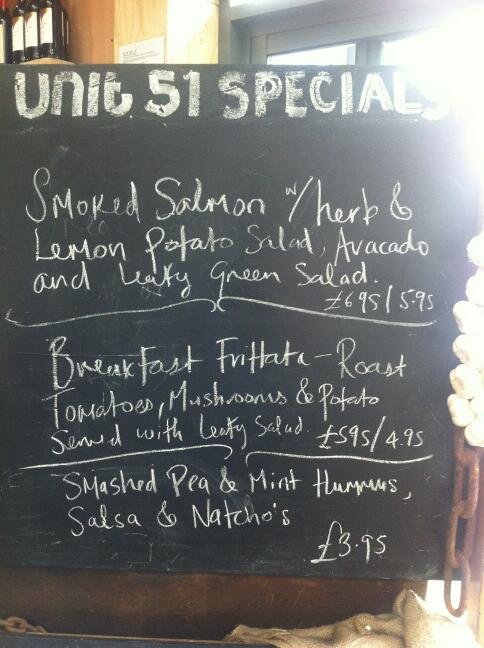 UNIT 51 SPECIALS
Smoked Salmon w/herb &
Lemon Potato Salad, Avacado
and Leafy Green Salad.
£695/5.95
Breakfast Frittata - Roast
Tomatoes, Mushrooms & Potato
Served with Leafy Salad. £595/4.95
Smashed Pea & Mint Hummus,
Salsa & Natcho's
£3.95